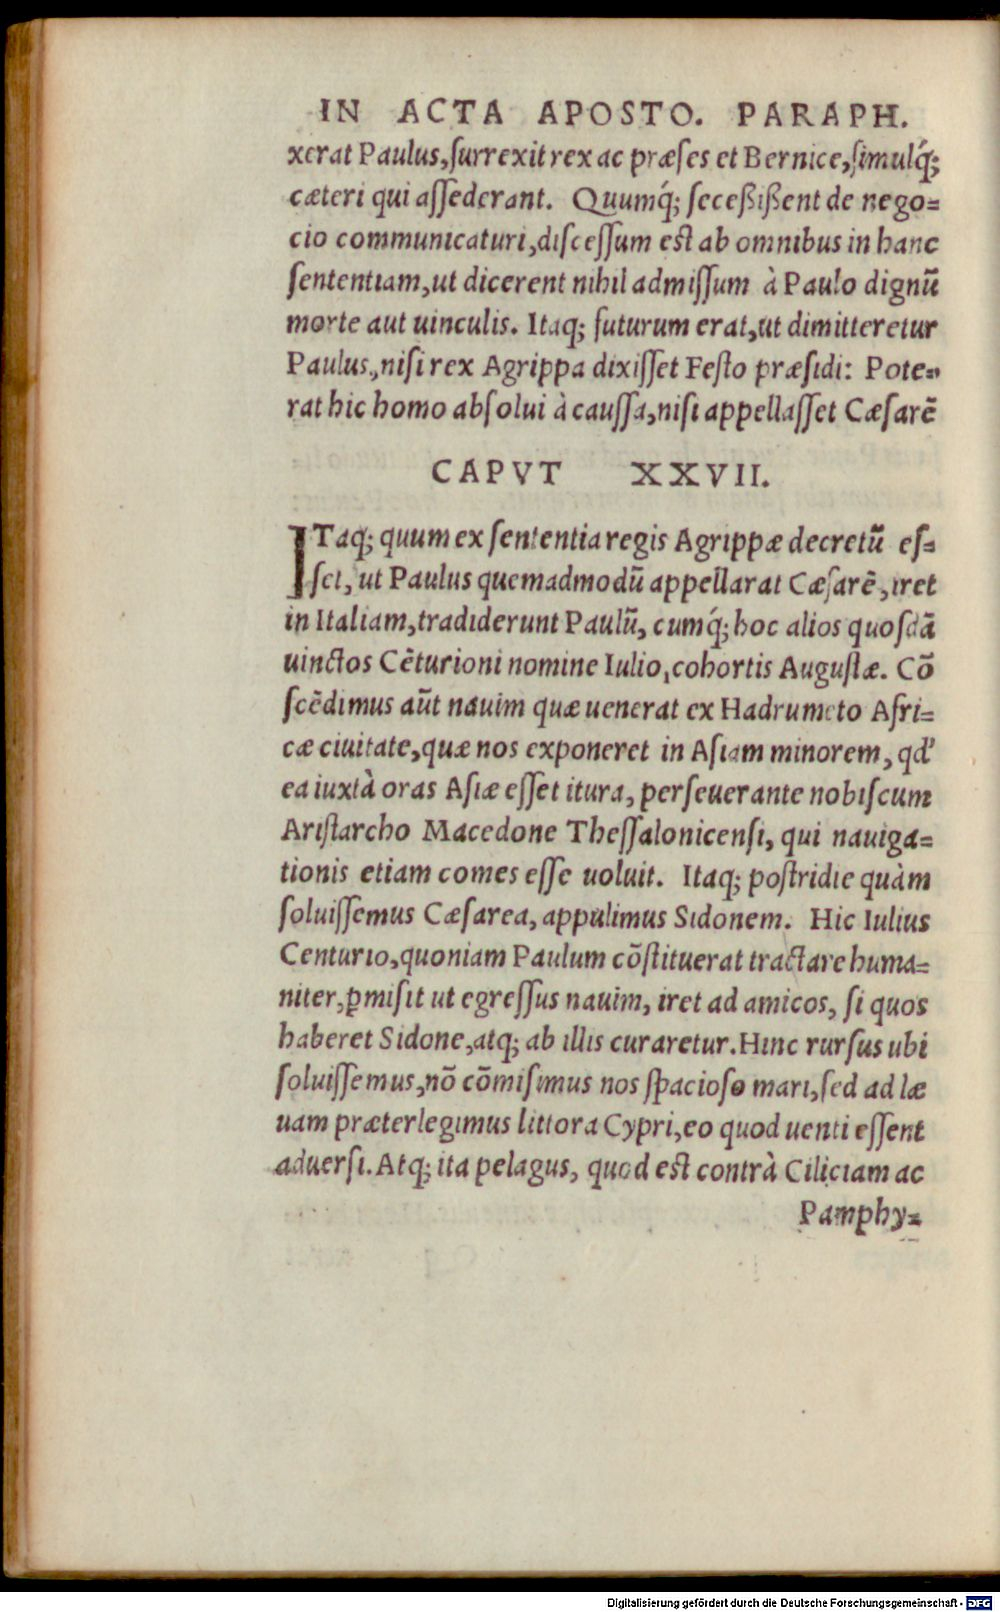 IN ACTA APOSTO. PARAPH.
xerat Paulus, ſurrexit rex ac præſes et Bernice, ſimulq́;
cæteri qui aſſederant. Quumq́; ſeceßißent de nego=
cio communicaturi, diſceſſum eſt ab omnibus in hanc
ſententiam, ut dicerent nihil admiſſum à Paulo dignũ
morte aut uinculis. Itaq; futurum erat, ut dimitteretur
Paulus, niſi rex Agrippa dixiſſet Feſto præſidi: Pote=
rat hic homo abſolui à cauſſa, niſi appellaſſet Cæſarẽ
CAPVT XXVII.
ITaq; quum ex ſententia regis Agrippæ decretũ eſ=
ſet, ut Paulus quemadmodũ appellarat Cæſarẽ, iret
in Italiam, tradiderunt Paulũ, cumq́; hoc alios quoſdã
uinctos Cẽturioni nomine Iulio, cohortis Auguſtæ. Cõ
ſcẽdimus aũt nauim quæ uenerat ex Hadrumeto Afri=
cæ ciuitate, quæ nos exponeret in Aſiam minorem, qd'
ea iuxtà oras Aſiæ eſſet itura, perſeuerante nobiſcum
Ariſtarcho Macedone Theſſalonicenſi, qui nauiga=
tionis etiam comes eſſe uoluit. Itaq; poſtridie quàm
ſoluiſſemus Cæſarea, appulimus Sidonem. Hic Iulius
Centurio, quoniam Paulum cõſtituerat tractare huma=
niter, ꝑmiſit ut egreſſus nauim, iret ad amicos, ſi quos
haberet Sidone, atq; ab illis curaretur. Hinc rurſus ubi
ſoluiſſemus, nõ cõmiſimus nos ſpacioſo mari, ſed ad læ
uam præterlegimus littora Cypri, eo quod uenti eſſent
aduerſi. Atq; ita pelagus, quod eſt contrà Ciliciam ac
Pamphy=
Digitalisierung gefördert durch die Deutsche Forschungsgemeinschaft - DFG